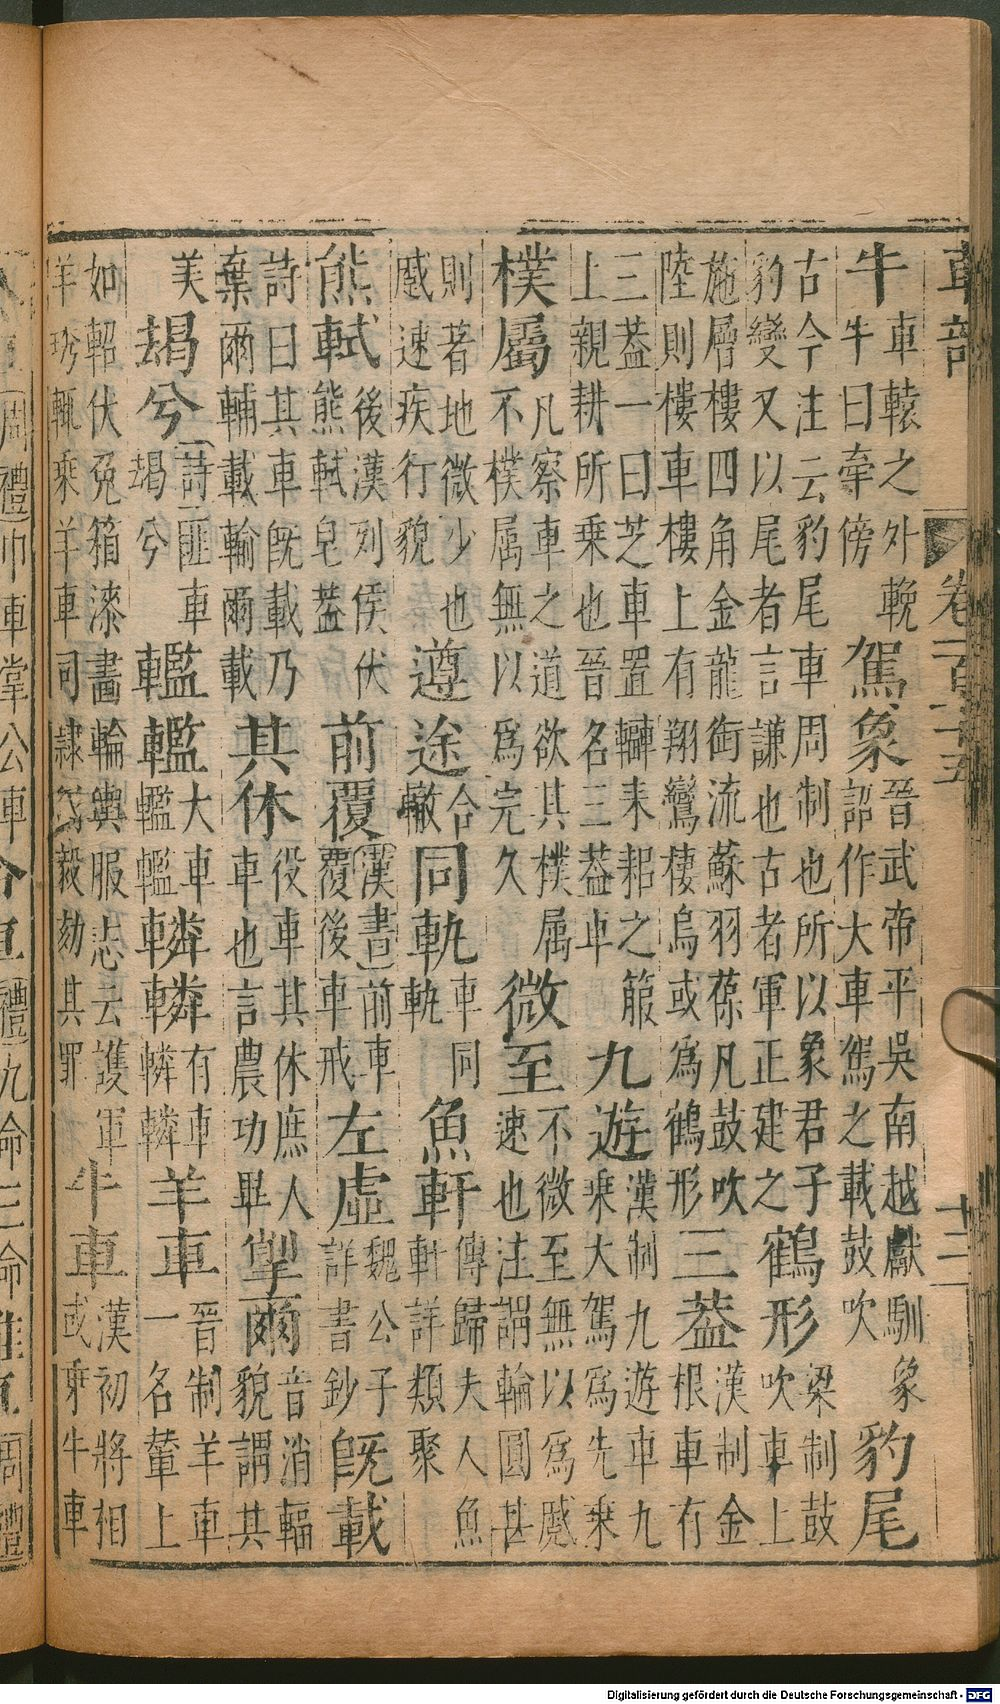 車部 卷一百二十五 十二
牛車轅之外輓牛曰牽傍駕象晉武帝平吳南越獻馴象詔作大車駕之載鼓吹豹尾
古今注云豹尾車周制也所以象君子豹變又以尾者言謙也古者軍正建之鶴形梁制鼓吹車上
施層樓四角金龍銜流蘇羽葆凡鼓吹陸則樓車樓上有翔鸞棲烏或為鶴形三蓋漢制金根車有
三蓋一曰芝車置轓耒耜之箙上親耕所乗也晉名三蓋車九遊漢制九遊車九乗大駕為先乗
樸屬凡察車之道欲其樸属不樸属無以為完久微至不微至無以為戚速也注謂輪圓甚
則著地微少也戚速疾行貌遵途合轍同軌車同軌魚軒傳歸夫人魚軒詳類聚
熊軾後漢列侯伏熊軾皂蓋前覆漢書前車覆後車戒左虛魏公子詳書鈔既載
詩曰其車既載乃棄爾輔載輸爾載其休役車其休庶人車也言農功畢掣爾音消輻貌謂其
美朅兮詩匪車朅兮轞轞大車轞轞轔轔有車轔轔羊車晉制羊車一名輦上
如軺伏兔箱漆畫輪輿服志云護軍羊琇輒乘羊車司隸劉毅劾其罪牛車漢初將相或乘牛車
周禮巾車掌公車命車禮九命三命